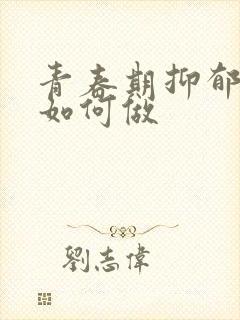 青春期抑郁
如何做
劉志偉